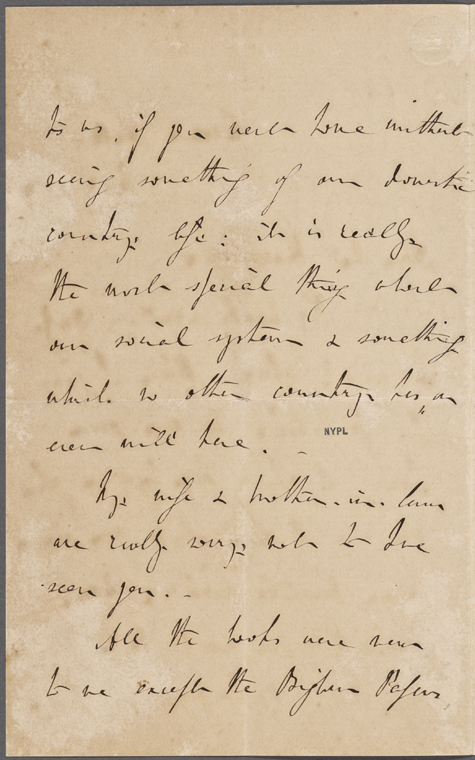 to us, if you went home without
seeing something of our domestic
country life: it is really
the most special thing about
our social system & something
which no other country has, or
ever will have. -
NYPL
My wife & brother-in-law
are really sorry not to have
seen you. -
All the books were new
to me except the Biglow Papers,